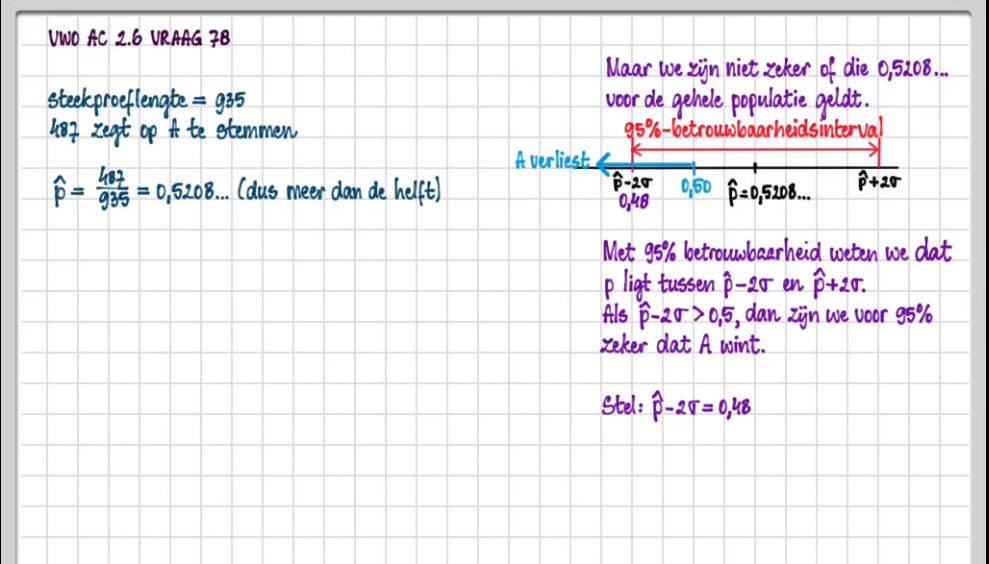 VWO AC 2.6 VRAAG 78
steekproeflengte = 935
487 zegt op A te stemmen
p̂ = 487/935 = 0,5208... (dus meer dan de helft)
Maar we zijn niet zeker of die 0,5208...
voor de gehele populatie geldt.
95%-betrouwbaarheidsinterval
A verliest
p̂-2σ 0,50 p̂=0,5208... p̂+2σ
0,48
Met 95% betrouwbaarheid weten we dat
p ligt tussen p̂-2σ en p̂+2σ.
Als p̂-2σ > 0,5, dan zijn we voor 95%
zeker dat A wint.
Stel: p̂-2σ = 0,48